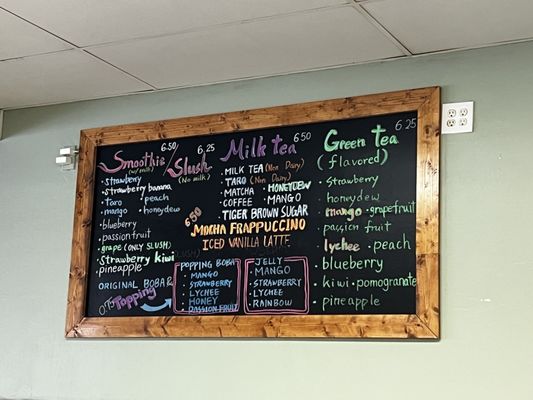 Smoothie 6.50 / Slush 6.25
(w/milk) (No milk)
• strawberry
• strawberry banana
• taro • peach
• mango • honeydew
• blueberry
• passionfruit
• grape (ONLY SLUSH)
• Strawberry kiwi
• pineapple
ORIGINAL BOBA &
0.75 Topping
Milk tea 6.50
• MILK TEA (Non Dairy)
• TARO (Non Dairy)
• MATCHA • HONEYDEW
• COFFEE • MANGO
• TIGER BROWN SUGAR
6.50
• MOCHA FRAPPUCCINO
• ICED VANILLA LATTE
POPPING BOBA
• MANGO
• STRAWBERRY
• LYCHEE
• HONEY
• PASSION FRUIT
JELLY
• MANGO
• STRAWBERRY
• LYCHEE
• RAINBOW
Green Tea 6.25
(flavored)
• Strawberry
• honeydew
• mango • grapefruit
• passion fruit
• lychee • peach
• blueberry
• kiwi • pomogranate
• pineapple